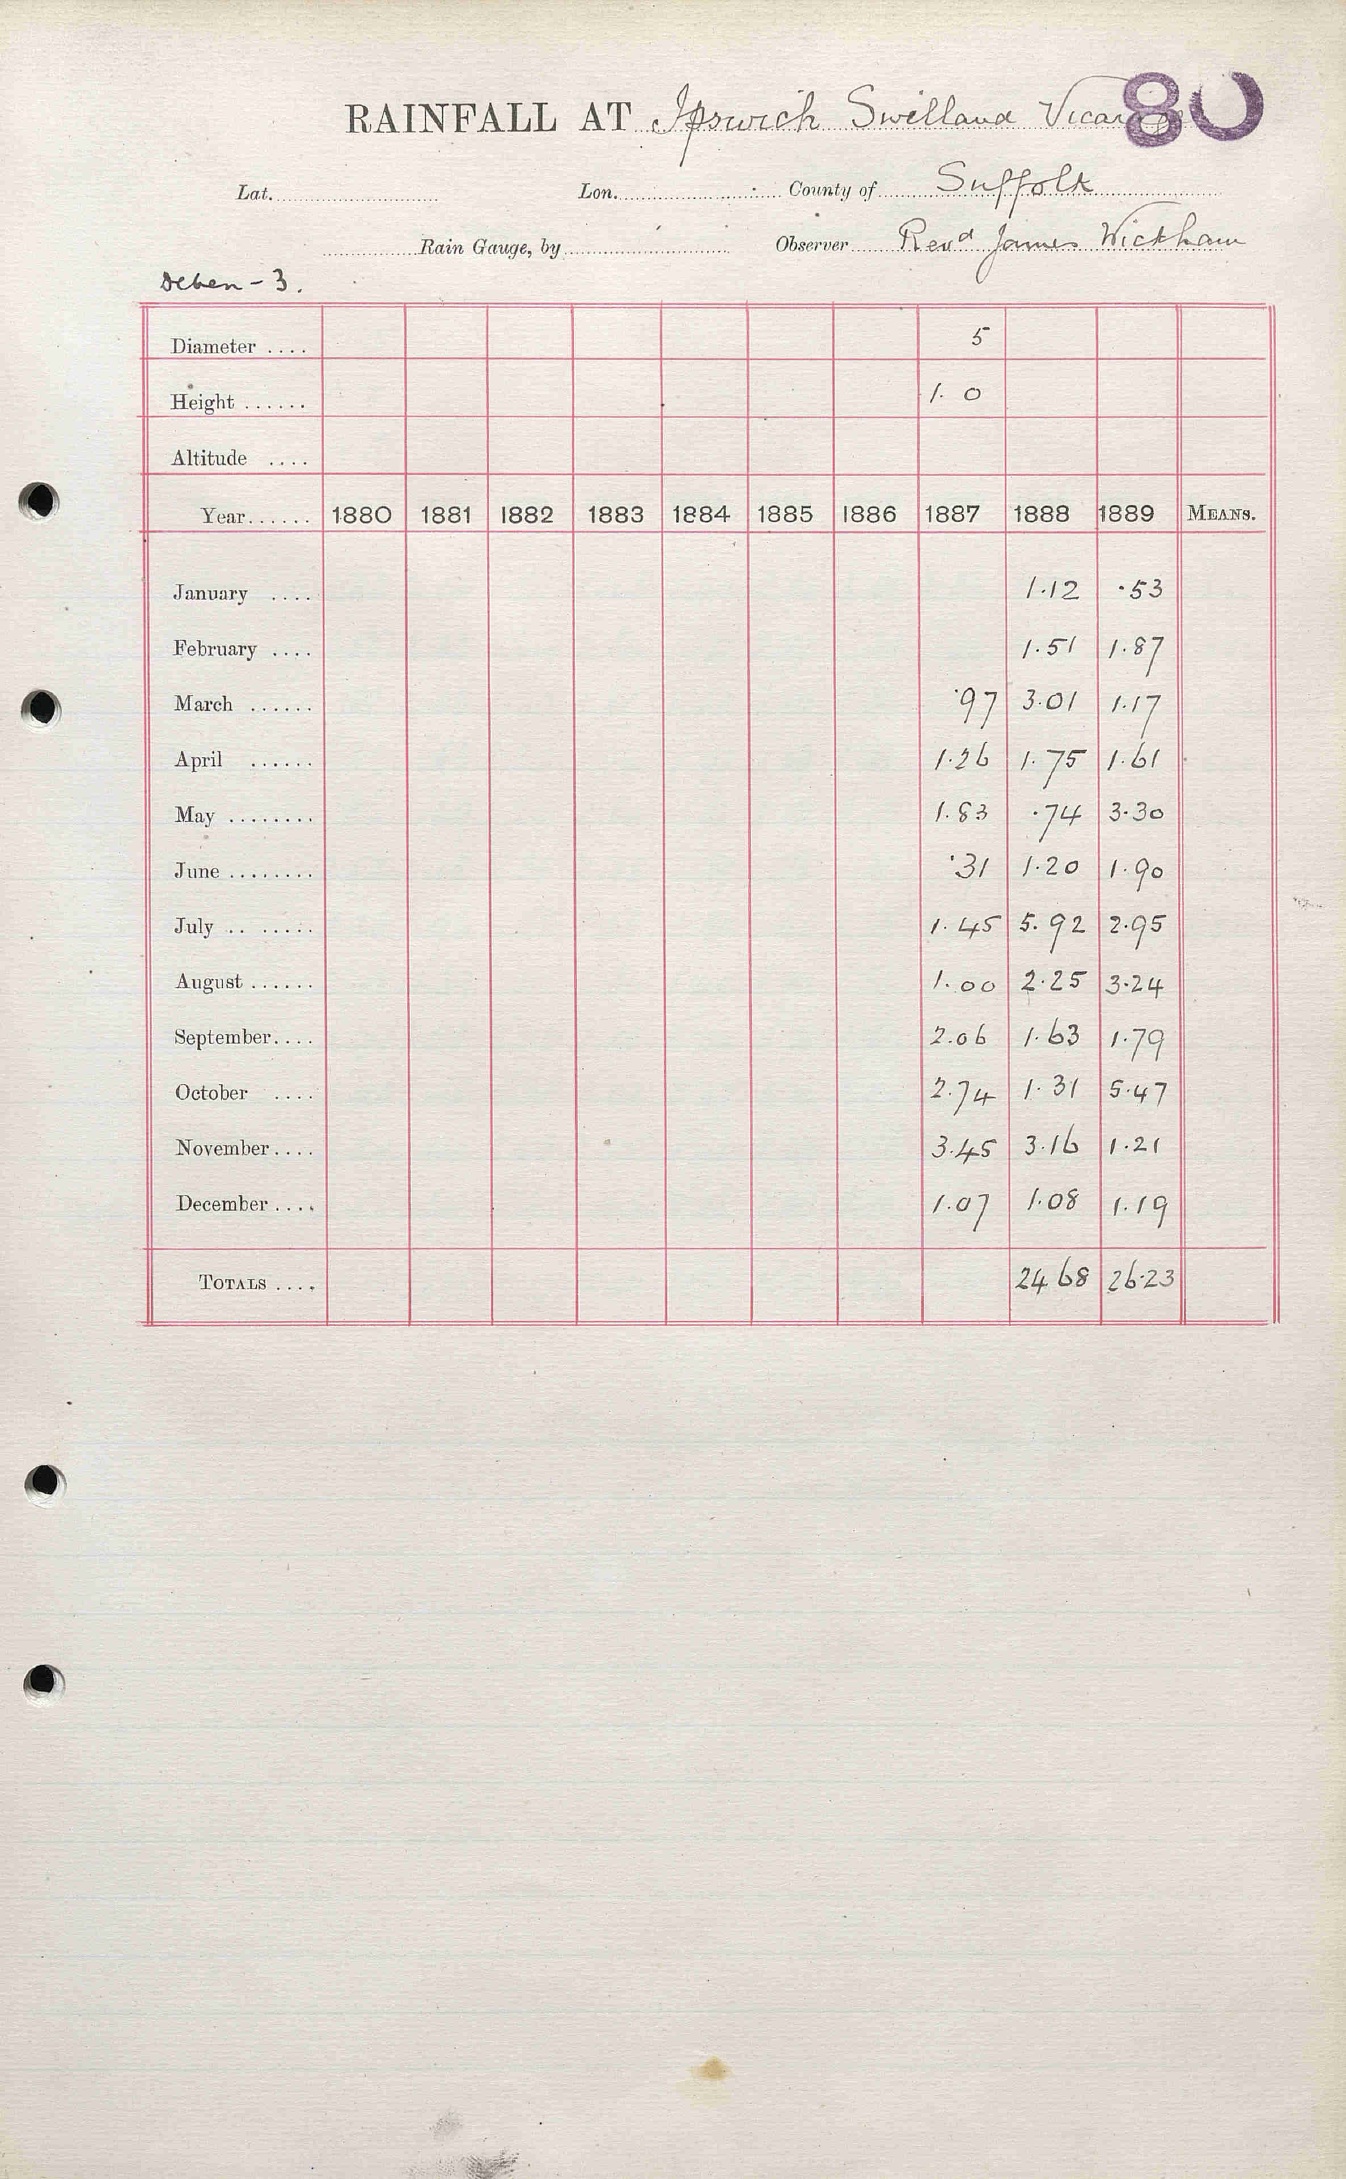 RAINFALL AT Ipswich Swilland 80
Lat. Lon. County of Suffolk
Rain Gauge, by Observer Revd James Wickham
Deben - 3.
Diameter .... 5
Height ...... 1. 0
Altitude ....
Year...... 1880 1881 1882 1883 1884 1885 1886 1887 1888 1889 MEANS.
January .... 1.12 .53
February .... 1.51 1.87
March ...... .97 3.01 1.17
April ...... 1.26 1.75 1.61
May ........ 1.83 .74 3.30
June ........ .31 1.20 1.90
July .. ...... 1.45 5.92 2.95
August ...... 1.00 2.25 3.24
September.... 2.06 1.63 1.79
October .... 2.74 1.31 5.47
November.... 3.45 3.16 1.21
December .... 1.07 1.08 1.19
TOTALS .... 24 68 26.23